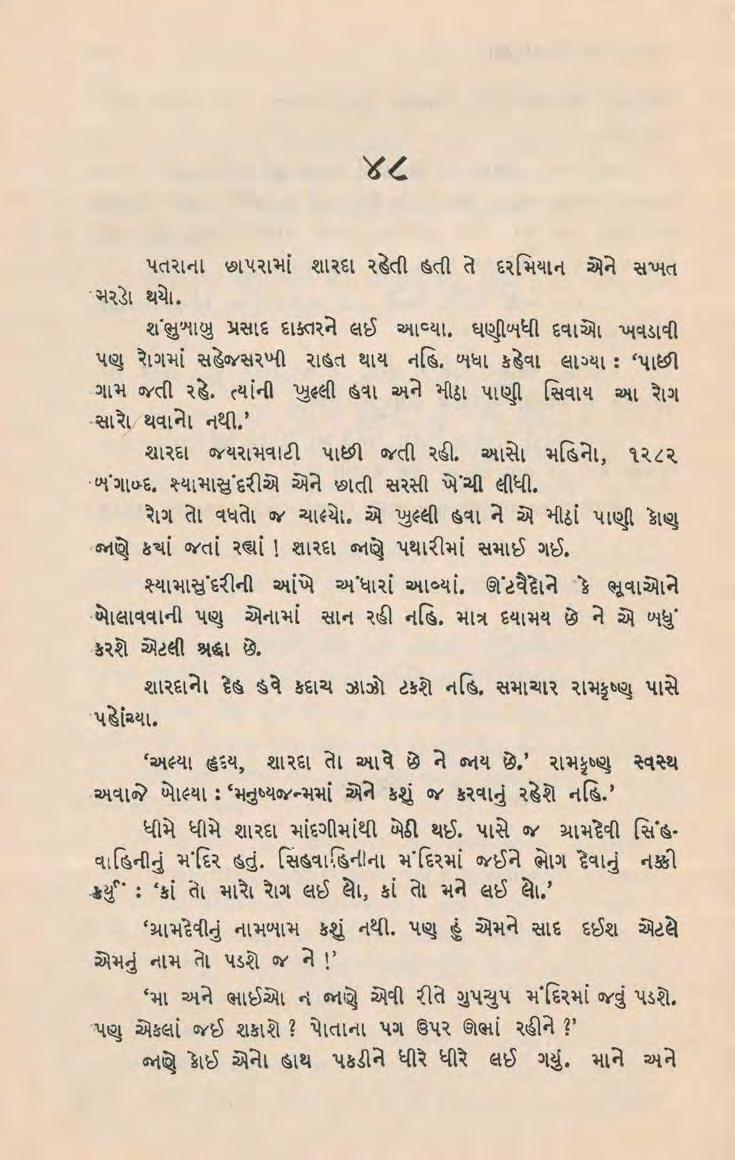 ૪૮
પતરાના છાપરામાં શારદા રહેતી હતી તે દરમિયાન એને સખત
મરડો થયો.
શંભુબાબુ પ્રસાદ દાક્તરને લઈ આવ્યા. ઘણીબધી દવાઓ ખવડાવી
પણ રોગમાં સહેજસરખી રાહત થાય નહિ. બધા કહેવા લાગ્યા : ‘પાછી
ગામ જતી રહે. ત્યાંની ખુલ્લી હવા અને મીઠા પાણી સિવાય આ રોગ
સારો થવાનો નથી.’
શારદા જયરામવાટી પાછી જતી રહી. આસો મહિનો, ૧૨૮૨
બંગાબ્દ. શ્યામાસુંદરીએ એને છાતી સરસી ખેંચી લીધી.
રોગ તો વધતો જ ચાલ્યો. એ ખુલ્લી હવા ને એ મીઠાં પાણી કોણ
જાણે ક્યાં જતાં રહ્યાં ! શારદા જાણે પથારીમાં સમાઈ ગઈ.
શ્યામાસુંદરીની આંખે અંધારાં આવ્યાં. ઊંટવૈદોને કે ભૂવાઓને
બોલાવવાની પણ એનામાં સાન રહી નહિ. માત્ર દયામય છે ને એ બધું
કરશે એટલી શ્રદ્ધા છે.
શારદાનો દેહ હવે કદાચ ઝાઝો ટકશે નહિ. સમાચાર રામકૃષ્ણ પાસે
પહોંચ્યા.
‘અલ્યા હૃદય, શારદા તો આવે છે ને જાય છે.’ રામકૃષ્ણ સ્વસ્થ
અવાજે બોલ્યા : ‘મનુષ્યજન્મમાં એને કશું જ કરવાનું રહેશે નહિ.’
ધીમે ધીમે શારદા માંદગીમાંથી બેઠી થઈ. પાસે જ ગ્રામદેવી સિંહ-
વાહિનીનું મંદિર હતું. સિંહવાહિનીના મંદિરમાં જઈને ભોગ દેવાનું નક્કી
કર્યું : ‘કાં તો મારો રોગ લઈ લો, કાં તો મને લઈ લો.’
‘ગ્રામદેવીનું નામબામ કશું નથી. પણ હું એમને સાદ દઈશ એટલે
એમનું નામ તો પડશે જ ને !’
‘મા અને ભાઈઓ ન જાણે એવી રીતે ગુપચુપ મંદિરમાં જવું પડશે.
પણ એકલાં જઈ શકાશે ? પોતાના પગ ઉપર ઊભાં રહીને ?’
જાણે કોઈ એનો હાથ પકડીને ધીરે ધીરે લઈ ગયું. માને અને